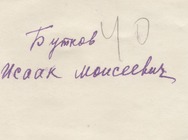 Бутков 40
Исаак Моисеевич